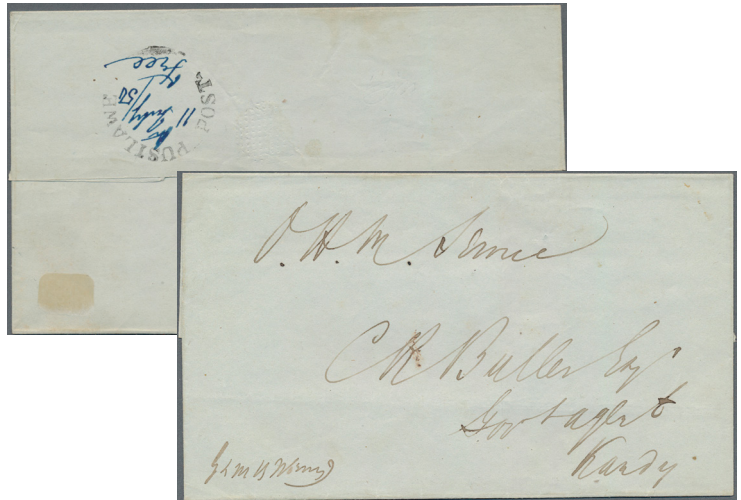 POST
PUSILAWE
11 July/50
Free
O. H. M. Service
C R Buller Esq
Govt Agent
Kandy